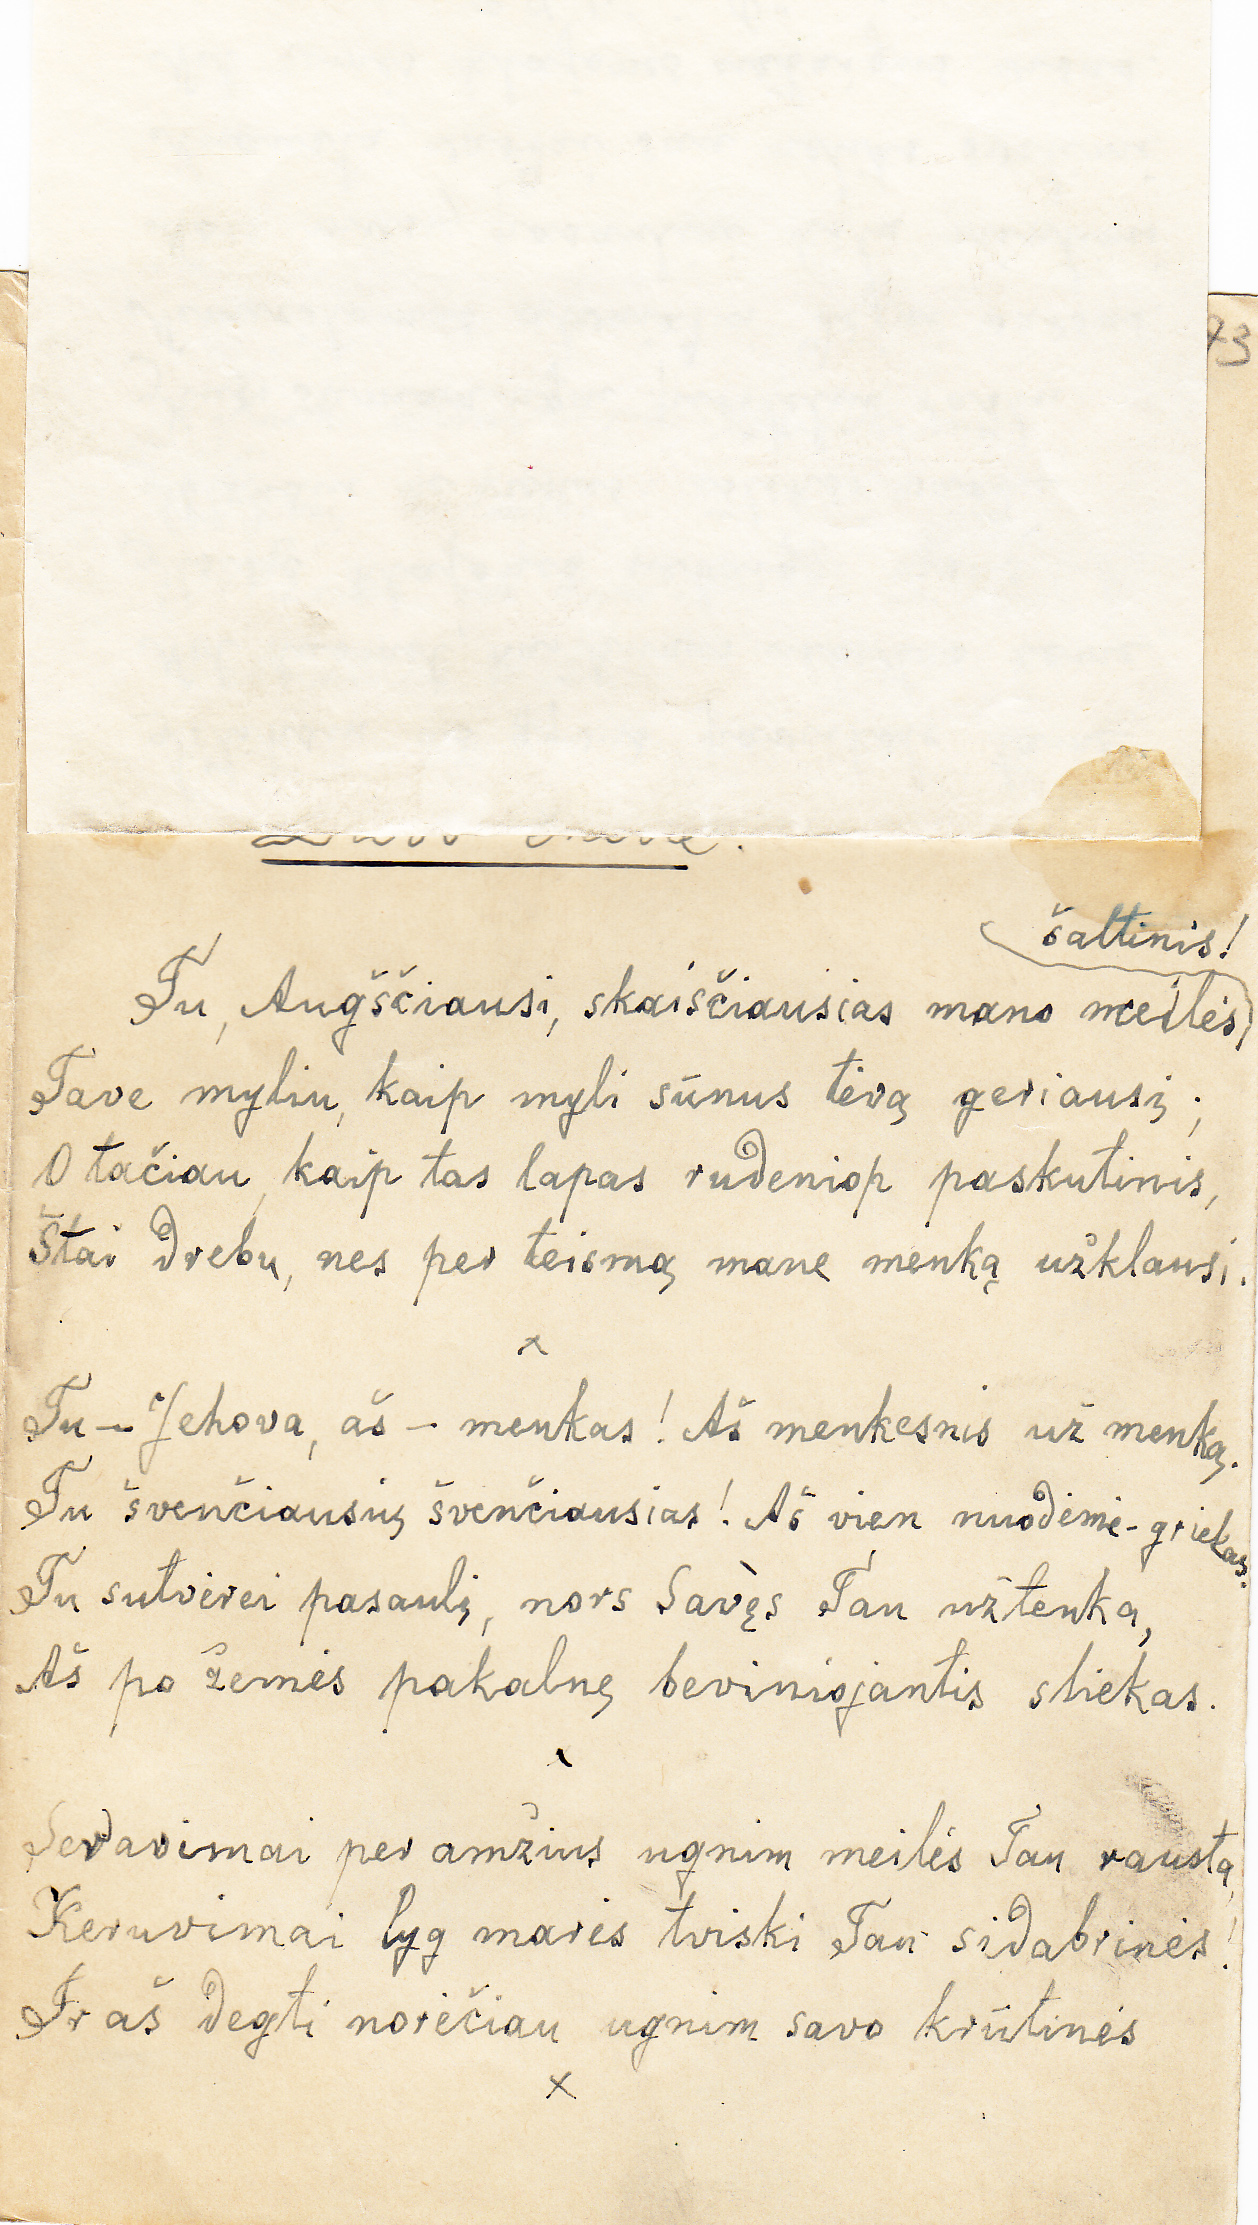 73
šaltinis!
Tu, Augščiausi, skaisčiausias mano meilės
Tave myliu, kaip myli sūnus tėvą geriausį;
O tačiau, kaip tas lapas rudeniop paskutinis,
Štai drebu, nes per teismą mane menką užklausi.
x
Tu – Jehova, aš – menkas! Aš menkesnis už menką.
Tu švenčiausių švenčiausias! Aš vien nuodėmė-griekas.
Tu sutvėrei pasaulį, nors Savęs Tau užtenka,
Aš po žemės pakalnę beviniojantis sliekas.
Seravimai per amžius ugnim meilės Tau rausta,
Keruvimai lyg marės tviski Tau sidabrinės!
Ir aš degti norėčiau ugnim savo krūtinės
x